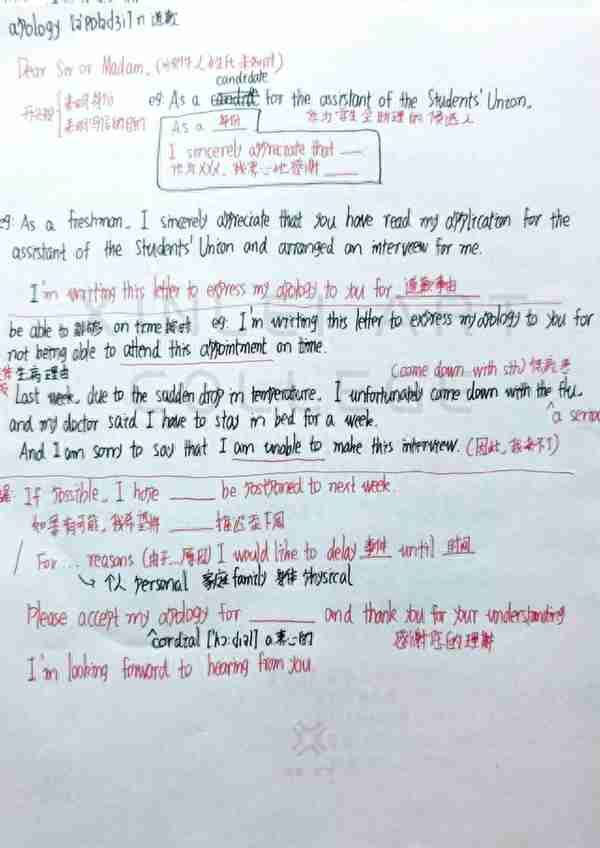 apology [əˈpɒlədʒi] n 道歉
Dear Sir or Madam, (
candidate
开头段 表明身份 eg: As a for the assistant of the Students' Union.
表明写信的目的 As a 身份 作为学生会助理的候选人
I sincerely appreciate that ___
作为XXX, 我衷心地感谢 ____
eg: As a freshman, I sincerely appreciate that you have read my application for the
assistant of the Students' Union and arranged an interview for me.
I'm writing this letter to express my apology to you for 道歉事由
be able to 能够 on time 按时 eg: I'm writing this letter to express my apology to you for
not being able to attend this appointment on time.
生病理由 (come down with sth)
Last week, due to the sudden drop in temperature, I unfortunately came down with the flu.
and my doctor said I have to stay in bed for a week. ^a serio
And I am sorry to say that I am unable to make this interview. (因此, 我去不了)
If possible, I hope ____ be postponed to next week.
如果有可能, 我希望将 ____ 推迟至下周
/ For ... reasons (由于...原因) I would like to delay 事件 until 时间
个人 personal 家庭 family 身体 physical
Please accept my apology for ______ and thank you for your understanding
^cordial [ˈkɔːdiəl] a 衷心的 感谢您的理解
I'm looking forward to hearing from you.
XINFEI ART
COLLEGE